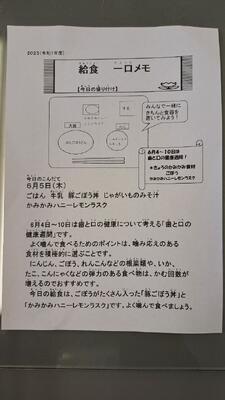 給食 一口メモ
【今日の盛り付け】
みんなで一緒に
きちんと食器を
置いてみよう！
牛乳
6月4～10日は
歯と口の健康週間！
★きょうのかみかみ食材
ごぼう
かみかみハニーレモンラスク
今日のこんだて
6月5日(木)
ごはん 牛乳 豚ごぼう丼 じゃがいものみそ汁
かみかみハニーレモンラスク
6月4日～10日は歯と口の健康について考える「歯と口の
健康週間」です。
よく噛んで食べるためのポイントは、噛み応えのある
食材を積極的に選ぶことです。
にんじん、ごぼう、れんこんなどの根菜類や、いか、
たこ、こんにゃくなどの弾力のある食べ物は、かむ回数が
増えるのでおすすめです。
今日の給食は、ごぼうがたくさん入った「豚ごぼう丼」と
「かみかみハニーレモンラスク」です。よく噛んで食べましょう。